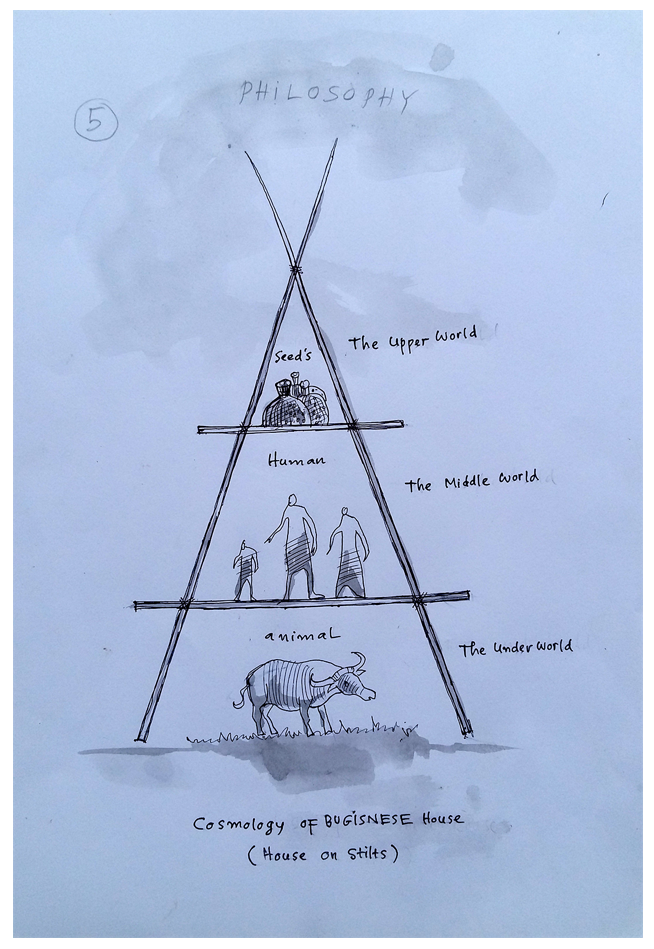 PHILOSOPHY
5
Seed's
The Upper World
Human
The Middle World
animal
The Under World
Cosmology of BUGISNESE House
(House on Stilts)